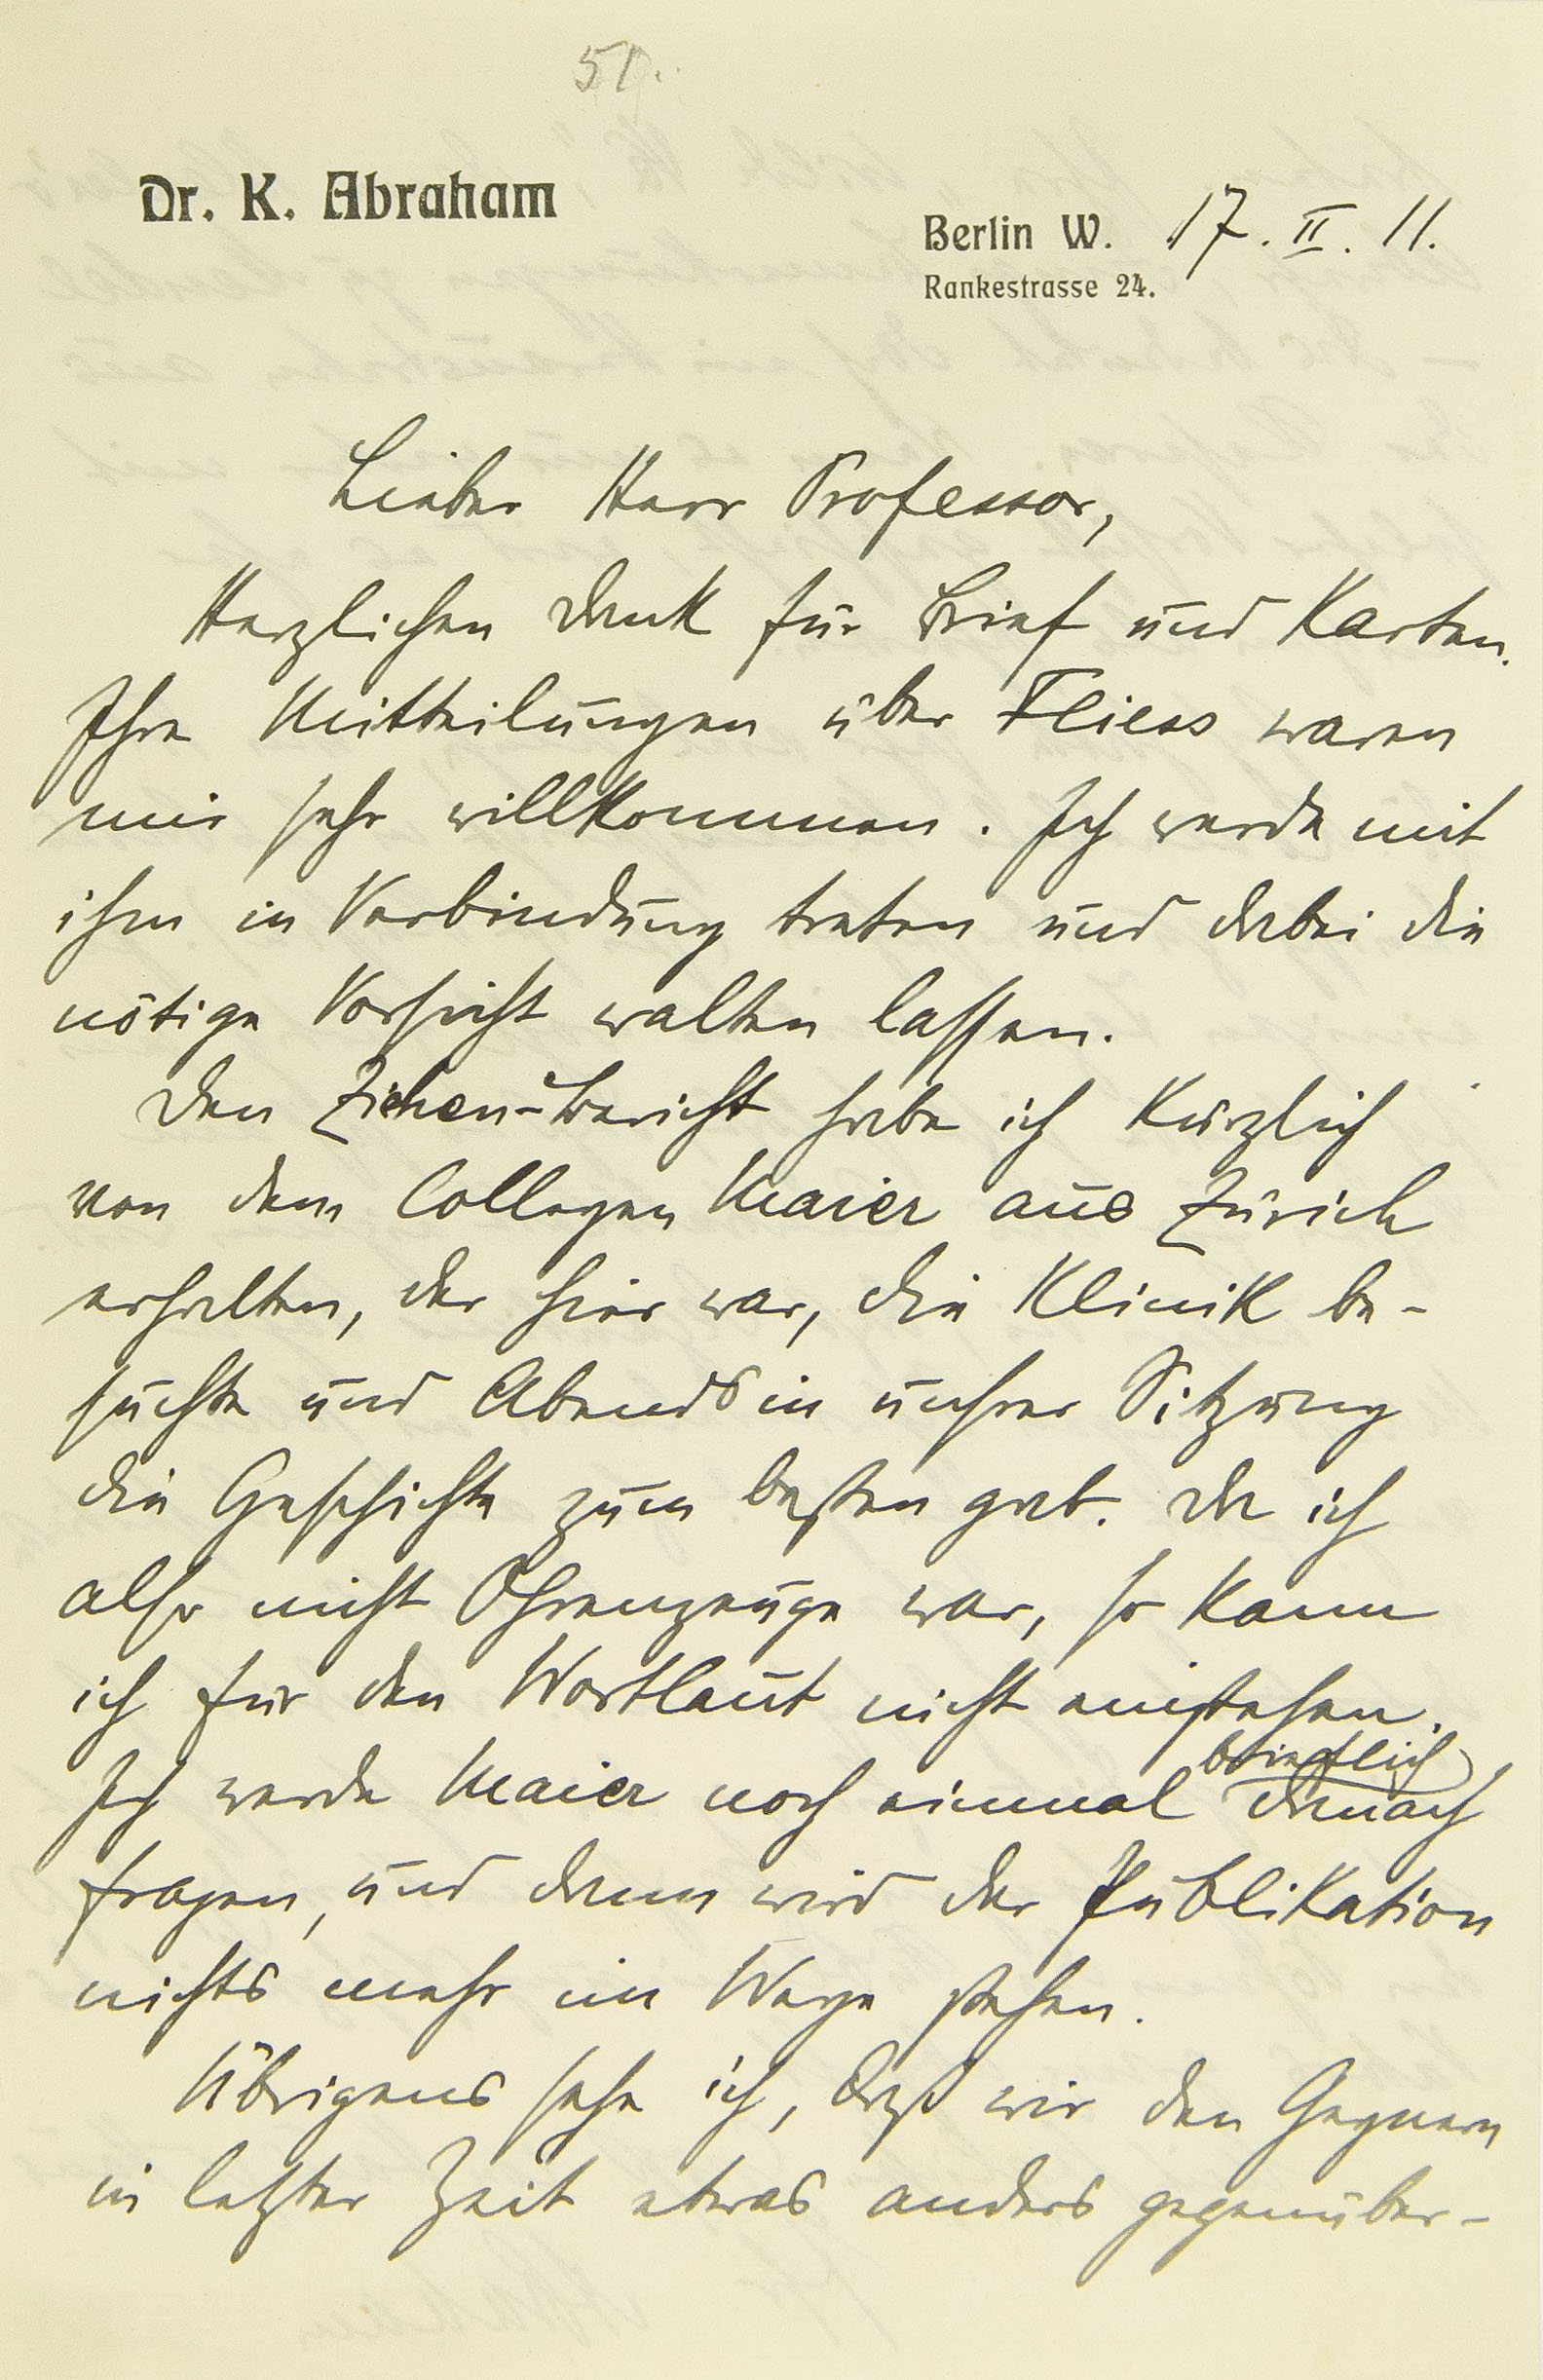 51.
Dr. K. Abraham
Berlin W. 17. II. 11.
Rankestrasse 24.
Lieber Herr Professor,
Herzlichen Dank für Brief und Karten.
Ihre Mitteilungen über Fliess waren
mir sehr willkommen. Ich werde mit
ihm in Verbindung treten und dabei die
nötige Vorsicht walten lassen.
Den Ziehen-Bericht habe ich kürzlich
von dem Collegen Maier aus Zürich
erhalten, der hier war, die Klinik be-
suchte und Abends in unsrer Sitzung
die Geschichte zum besten gab. Da ich
also nicht Ohrenzeuge war, so kann
ich für den Wortlaut nicht einstehen.
Ich werde Maier noch einmal brieflich danach
fragen, und dann wird der Publikation
nichts mehr im Wege stehen.
Übrigens sehe ich, daß wir den Gegnern
in letzter Zeit etwas anders gegenüber-